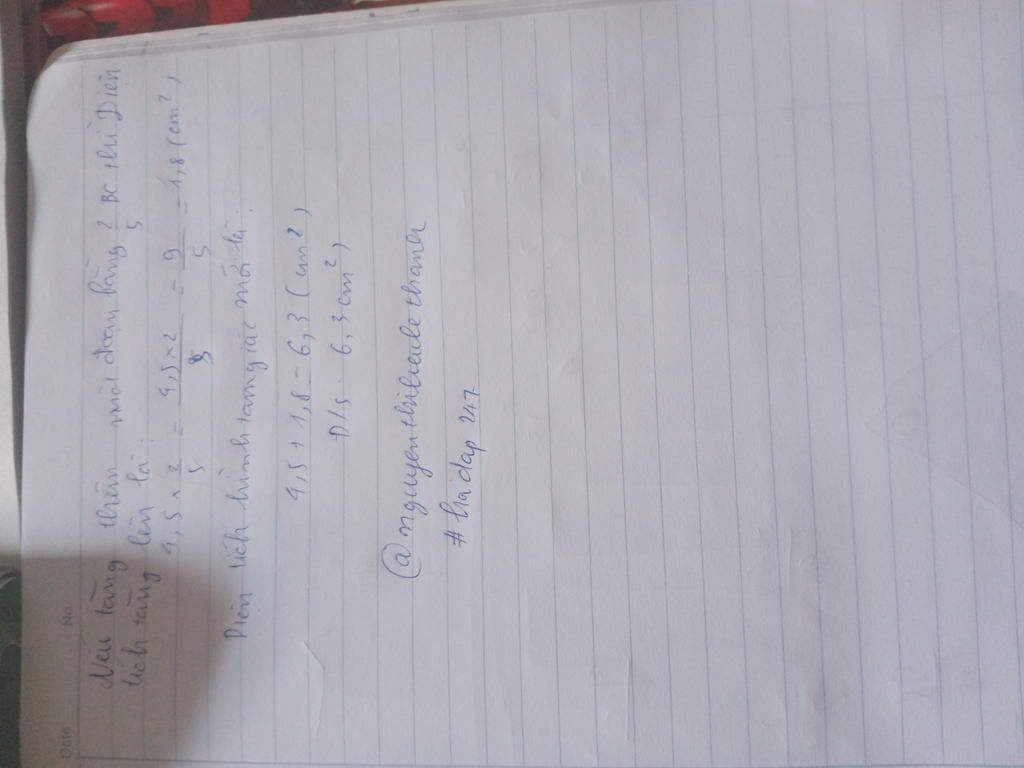 Date No.
Nếu tăng thêm một đoạn bằng 2/5 BC thì Diện
tích tăng lên là:
4,5 × 2/5 = 4,5×2/5 = 9/5 = 1,8 (cm²)
Diện tích hình tam giác mới là:
4,5 + 1,8 = 6,3 (cm²)
Đ/s: 6,3 cm²
# hoidap 247